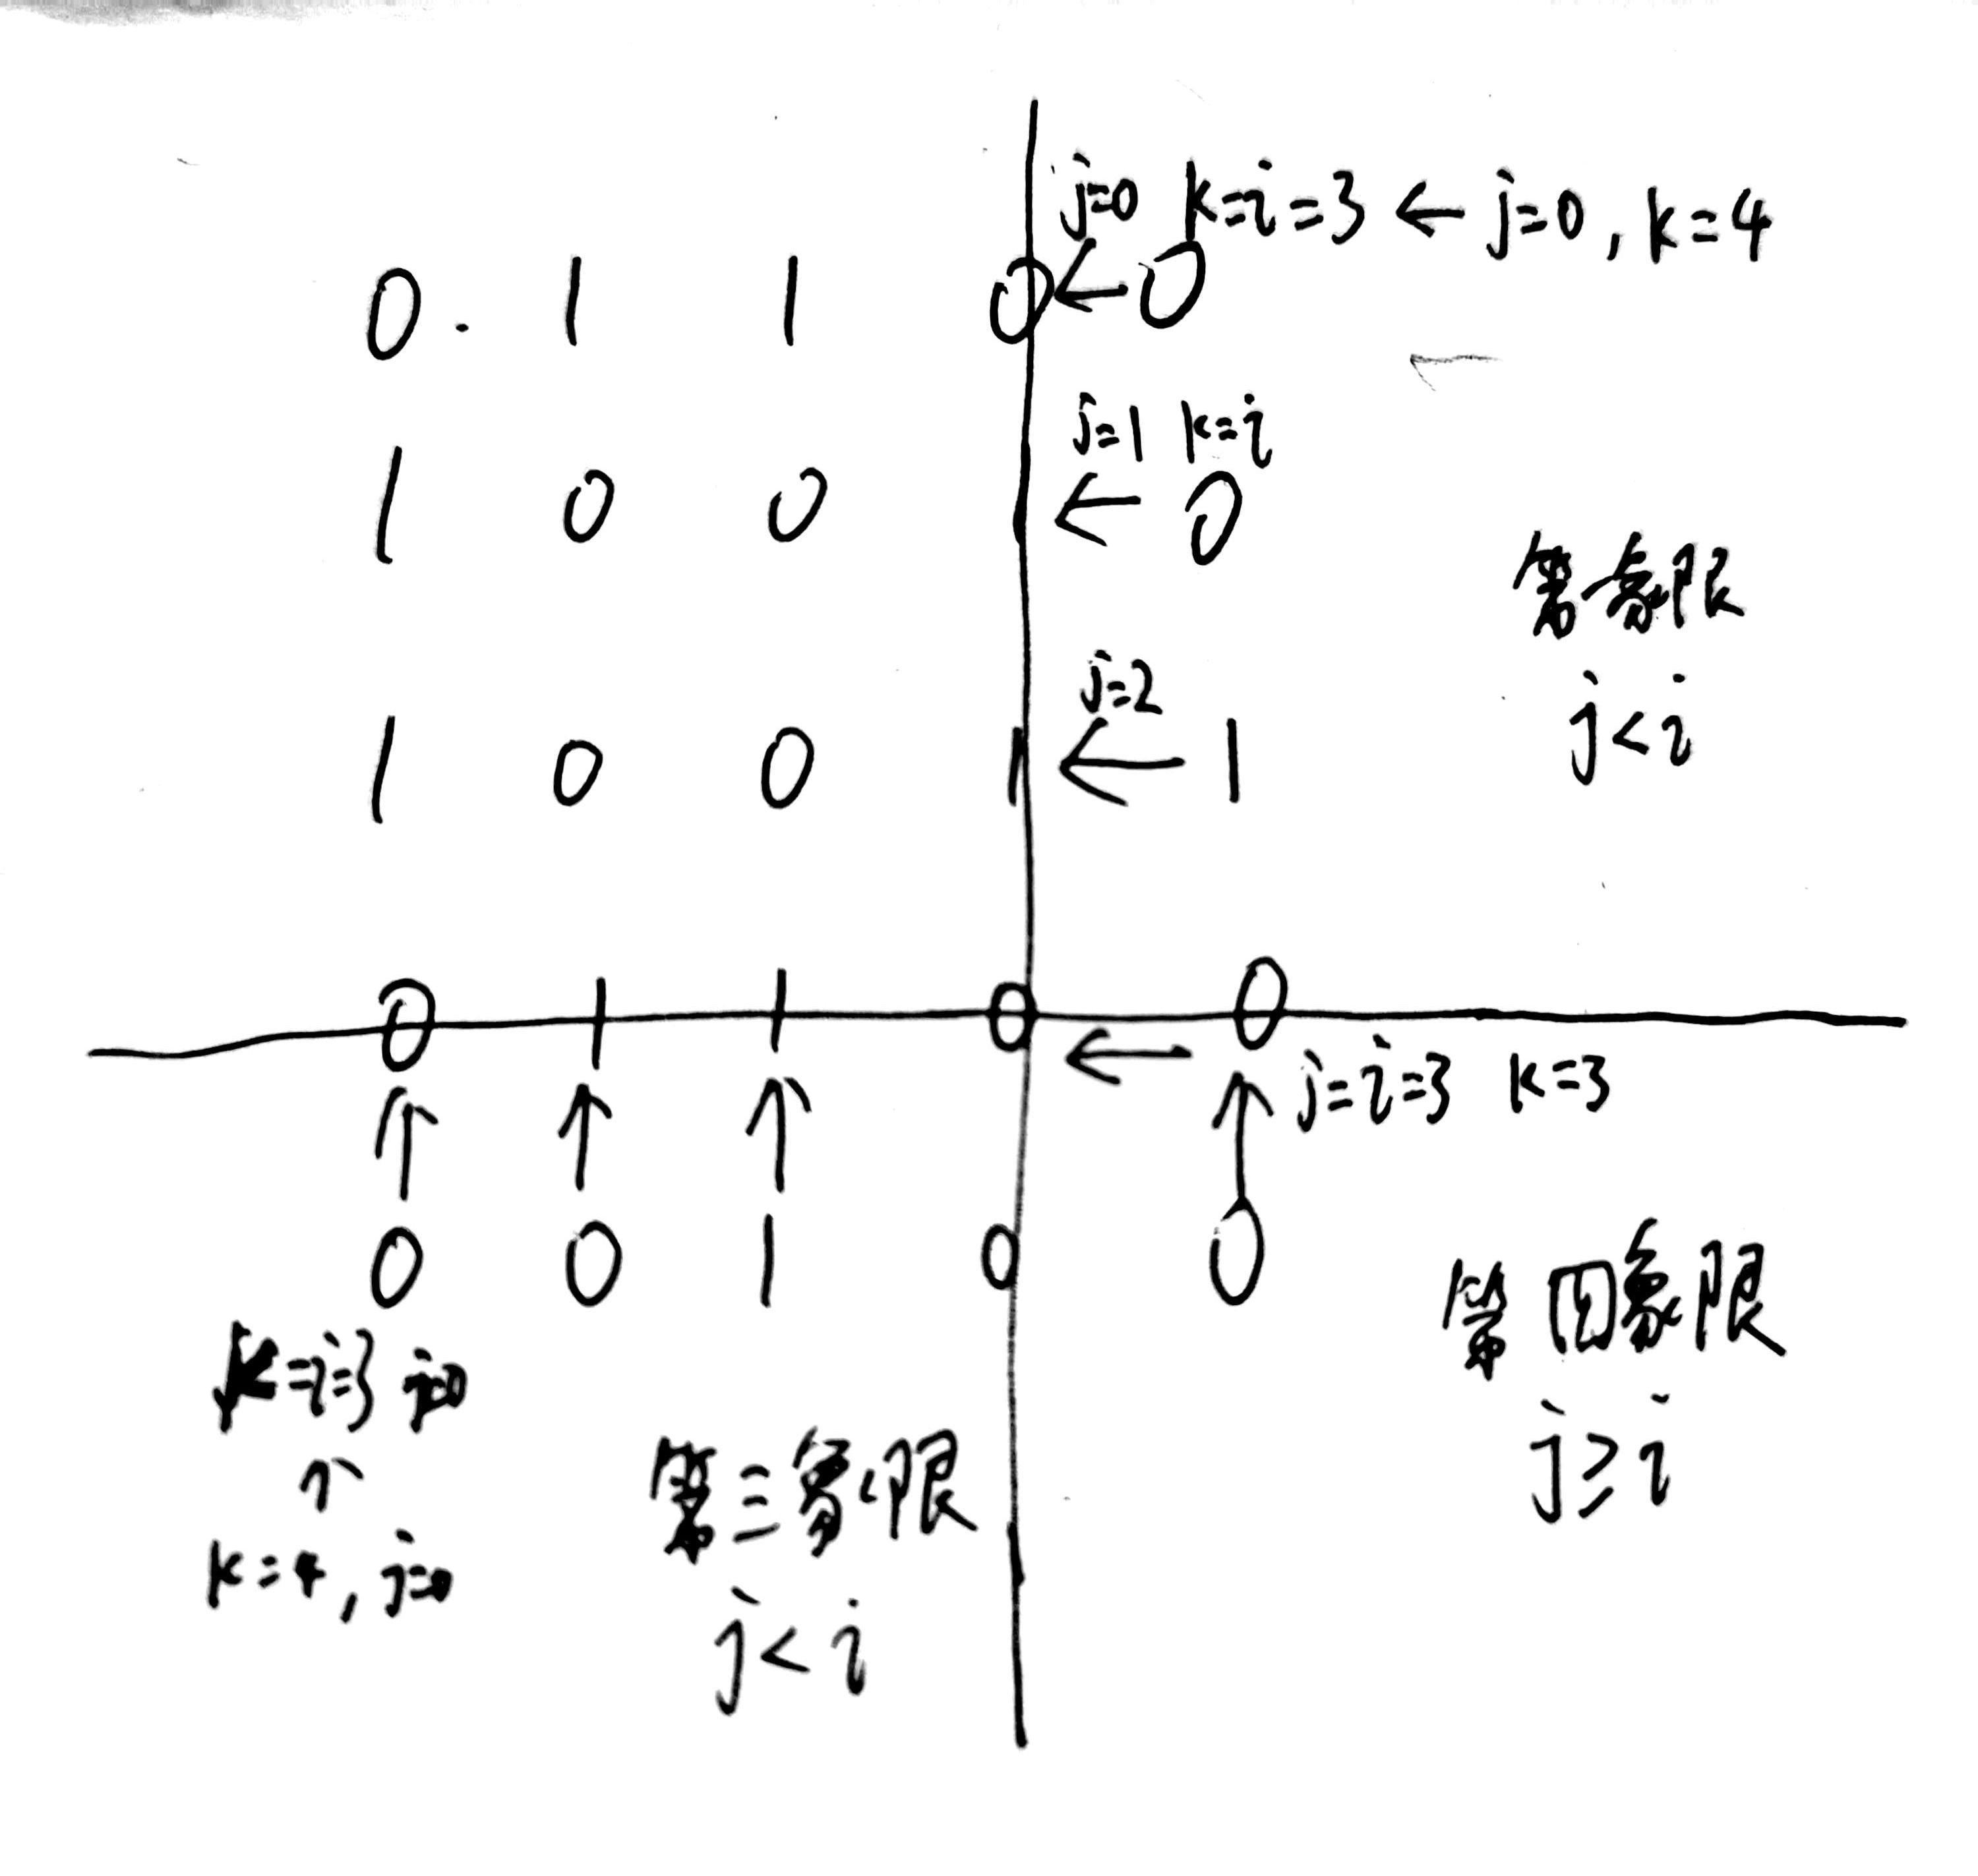 j=0 k=i=3 ← j=0, k=4
0. 1 1 0 ← 0
j=1 k=i
1 0 0 ← 0
第一象限
j=2
j<i
1 0 0 1 ← 1
0 1 1 0 0
← j=i=3 k=3
↑ ↑ ↑ ↑
0 0 1 0 0
第四象限
k=i=3 j=0
j≥i
↑
第三象限
k=4, j=0
j<i